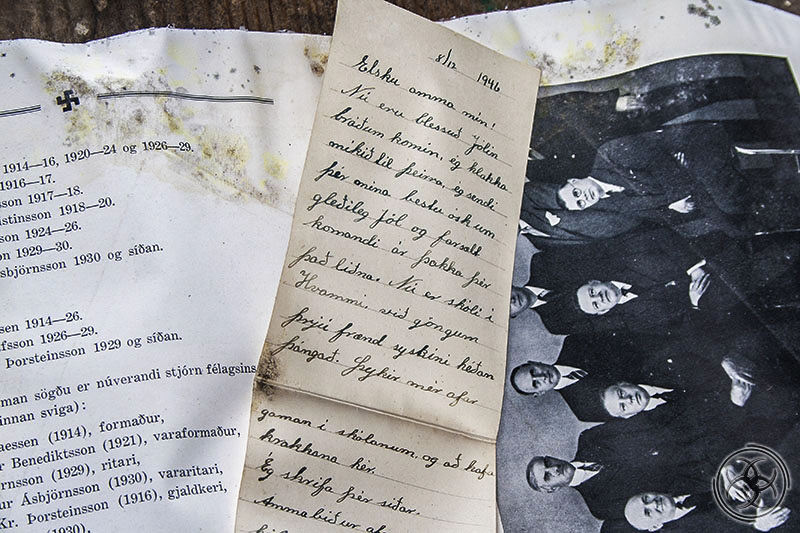 1914—16, 1920—24 og 1926—29.
1916—17.
sson 1917—18.
istinsson 1918—20.
son 1924—26.
on 1929—30.
sbjörnsson 1930 og síðan.
sen 1914—26.
fsson 1926—29.
Þorsteinsson 1929 og síðan.
man sögðu er núverandi stjórn félagsins
innan sviga):
aessen (1914), formaður,
r Benediktsson (1921), varaformaður,
örnsson (1929), ritari,
ur Ásbjörnsson (1930), vararitari,
Kr. Þorsteinsson (1916), gjaldkeri,
(1930),
8/12 1946
Elsku amma mín!
Nú eru blessuð jólin
bráðum komin, ég hlakka
mikið til þeirra, ég sendi
þér mína bestu ósk um
gleðileg jól og farsælt
komandi ár þakka þér
það liðna. Nú er skóli í
Hvammi við göngum
þrjú frændsyskini héðan
þangað. Þykir mér afar
gaman í skólanum, og að hafa
krakkana hér.
Ég skrifa þér síðar.
Amma biður að